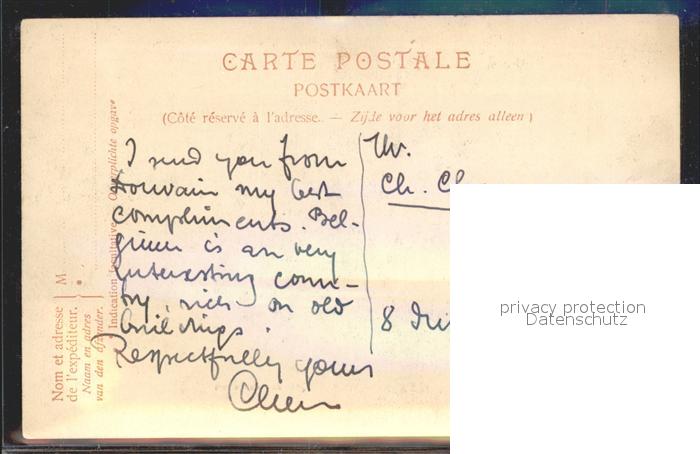 CARTE POSTALE
POSTKAART
(Côté réservé à l'adresse. — Zijde voor het adres alleen)
I send you from
Louvain my best
compliments. Bel-
gium is an very
interesting coun-
try, rich on old
buildings.
Respectfully yours
Ch. Ch
8
Nom et adresse
de l'expéditeur.
Naam en adres
van den afzender.
M
Indication facultative. Onverplichte opgave
privacy protection
Datenschutz